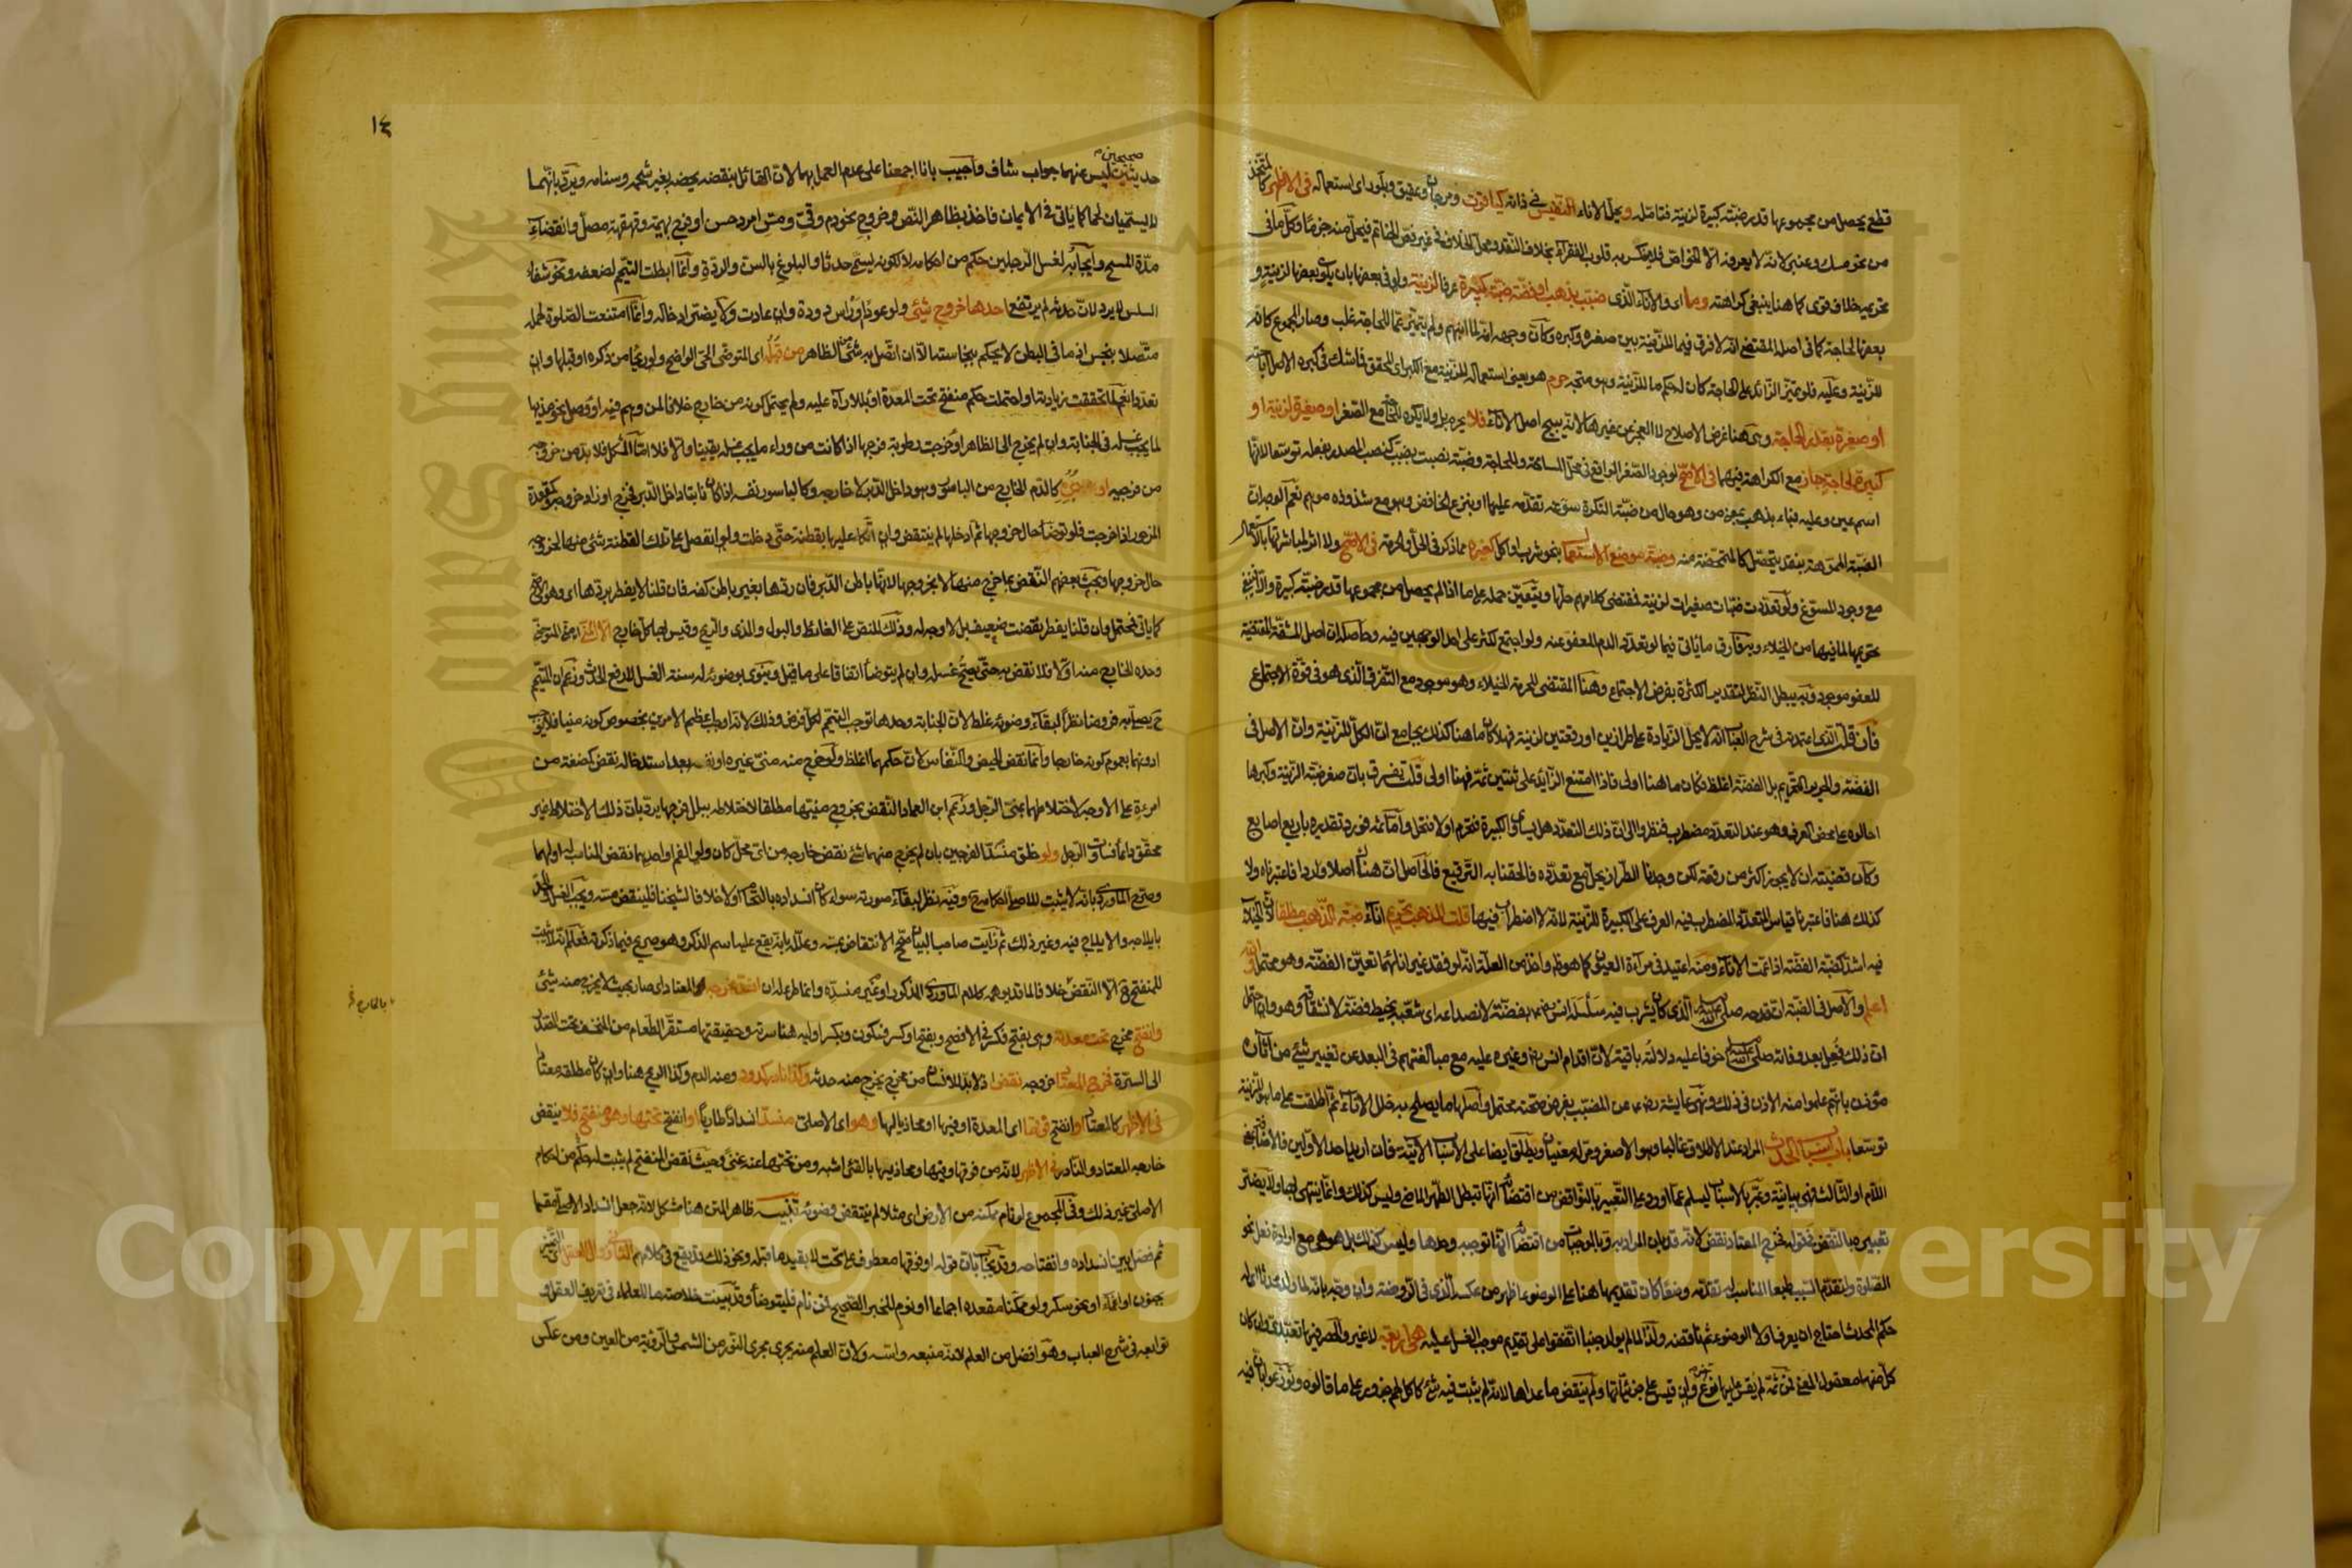 قطع يحصل من مجموعها قدر ضبة كبيرة لزينة فتأمله ويحل الاناء النفيس في ذاته كياقوت ومرجان وعقيق وبلور اى استعماله في الاظهر كالمتخذ
من نحو مسك وعنبر لانه لا يعرفه الا الخواص فلا ينكسر به قلوب الفقراء بخلاف النقد ومحل الخلاف في غير فص الخاتم فيحل منه جزما وكل ما في
تحريمه خلاف قوى كما هنا ينبغي كراهته وما اى والاناء الذى ضبب بذهب او فضة ضبة كبيرة عرفا لزينة ولو في بعضها بان يكون بعضها لزينة و
بعضها لحاجة كما في اصله المقتضى انه لا فرق فيما للزينة بين صغره وكبره وكان وجهه انه لما انبهم ولم يتميز عما للحاجة غلب وصار المجموع كانه
للزينة وعليه فلو تميز الزائد على الحاجة كان له حكم ما للزينة وهو متجه حرم هو يعني استعماله للزينة مع الكبر اى المحقق فما شك في كبره الاصل اباحته
او صغيرة بقدر الحاجة وهى هنا غرض الاصلاح لا العجز عن غيرها لانه يبيح اصل الاناء فلا يحرم بل ولا يكره للحاجة مع الصغر او صغيرة لزينة او
كبيرة لحاجة جاز مع الكراهة فيهما في الاصح لوجود الصغر الواقع في محل المسامحة وللحاجة وضبة نصبت بضبب كنصب المصدر بفعله توسعا لانها
اسم عين وعليه فباء بذهب بمعنى من وهو حال من ضبة النكرة سوغه تقدمه عليها او بنزع الخافض وهو مع شذوذه موهم نعم المعدات
الضبة المموهة بنقد يتحصل كالمتمحضة منه وضبة موضع الاستعمال بنحو شرب او اكل كغيره مما ذكر في الحل والحرمة في الاصح ولا اثر لمباشرتها بالاستعمال
مع وجود المسوغ ولو تعددت ضبات صغيرات لزينة فمقتضى كلامهم حلها ويتعين حمله على ما اذا لم يحصل من مجموعها قدر ضبة كبيرة والا فينبغي
تحريمها لما فيها من الخيلاء وبه فارق ما ياتي فيما لو تعدد الدم المعفو عنه ولو اجتمع لكثر على احد الوجهين فيه وحاصله ان اصل المشقة المقتضية
للعفو موجود وبه يبطل النظر لتقدير الكثرة بفرض الاجتماع وهنا المقتضى للحرمة الخيلاء وهو موجود مع التفرق الذى هو في قوة الاجتماع
فان قلت الذى اعتمدته في شرح العباب انه لا يحل الزيادة على طرازين او رقعتين لزينة فهلا كان ما هنا كذلك بجامع ان الكل للزينة وان الاصل في
الفضة والحرير التحريم بل الفضة اغلظ فكان ما هنا اولى فاذا امتنع الزائد على ثنتين ثمة فهنا اولى قلت يفرق بان صغر ضبة الزينة وكبرها
احالوه على محض العرف وهو عند التعدد مضطرب فنظروا الى ان ذلك التعدد هل يساوى الكبيرة فتحرم او لا فتحل واما ثمة فورد تقديره باربع اصابع
وكان قضيته ان لا يجوز اكثر من رقعة لكن وجدنا الطراز يحل مع تعدده فالحقنا به الترقيع فالحاصل ان هنا اصلا واردا فاعتبرناه ولا
كذلك هنا فاعتبرنا قياس المتعدد المضطرب فيه العرف على الكبيرة للزينة لانه لا اضطراب فيها قلت المذهب تحريم اناء ضبة الذهب مطلقا لان الخيلاء
فيه اشد كضبة الفضة اذا عمت الاناء ومنه اعتيد في مرآة العيون كما هو ظاهر واخذ من العلة انه لو فقد غير انائهما تعين الفضة وهو محتمل والله
اعلم والاصل في الضبة ان قدحه صلى الله عليه وسلم الذى كان يشرب فيه سلسله انس رضي الله عنه بفضة لانصداعه اى شعبه بخيط فضة لانشقاقه وهو وان احتمل
ان ذلك فعل بعد وفاته صلى الله عليه وسلم خوفا عليه دلالته باقية لان اقدام انس رضي الله عنه وغيره عليه مع مبالغتهم في البعد عن تغيير شئ من آثاره
مؤذن بانهم علموا منه الاذن في ذلك ونهى عايشة رضي الله عنها عن المضبب بفرض صحته محتمل واصلها ما يصلح به خلل الاناء ثم اطلقت على ما هو للزينة
توسعا باب اسباب الحدث المراد عند الاطلاق غالبا وهو الاصغر ومر له معنيان ويطلق ايضا على الاسباب الاتية فان اريد احد الاولين فالاضافة بمعنى
اللام او الثالث فهى بيانية وعبر بالاسباب ليسلم عما اورد على التعبير بالنواقض من اقتضائه انها تبطل الطهر الماضى وليس كذلك وانما ينتهى بها ولا يضر
تعبيره بالنقض في قوله فخرج المعتاد نقض لانه قد بان المراد به وبالموجبات من اقتضائه انها توجبه وحدها وليس كذلك بل هو هى مع ارادة فعل نحو
الصلاة ولتقدم السبب طبعا المناسب له تقدمه وضعا كان تقديمها هنا على الوضوء اظهر من عكسه الذى في الروضة وان وجه بانه لما ولد محدثا اى له
حكم المحدث احتاج ان يعرف اولا الوضوء ثم ناقضه ولذا لما لم يولد جنبا اتفقوا على تقديم موجب الغسل عليه هى اربعة لا غير والحصر فيها تعبدى وان كان
كل منها معقول المعنى فمن ثمة لم يقس عليها نوع آخر وان قيس على جزئياتها ولم ينقض ما عداها لانه لم يثبت فيه شئ كاكل لحم جزور على ما قالوه وتوزعوا بان فيه
١٤
حديثين صحيحين ليس عنهما جواب شاف واجيب بانا اجمعنا على عدم العمل بهما لان القائل بنقضه يخصه بغير شحمه وسنامه ويرد بانهما
لا يسميان لحما كما ياتي في الايمان فاخذ بظاهر النص وخروج نحو دم وقئ ومس امرد حسن او فرج بهيمة وقهقهة مصل وانقضاء
مدة المسح وايجابه لغسل الرجلين حكم من احكامه لا لكونه ليسمى حدثا والبلوغ بالسن والردة وانما ابطلت التيمم لضعفه ونحو شفاء
السلس لا يرد لان حدثه لم يرتفع احدها خروج شئ ولو عودا او راس دودة وان عادت ولا يضر ادخاله وانما امتنعت الصلوة لحمله
متصلا بنجس اذ ما في البطن لا يحكم بنجاسته الا ان اتصل به شئ من الظاهر من قبله اى المتوضئ الحى الواضح ولو ريحا من ذكره او قبلها وان
تعددا نعم لما تحققت زيادته او احتملت حكم منفتح تحت المعدة او بللا رآه عليه ولم يحتمل كونه من خارج خلافا لمن وهم فيه او وصل نحو مذيها
لما يجب غسله في الجنابة وان لم يخرج الى الظاهر او خرجت رطوبة فرجها اذا كانت من وراء ما يجب غسله يقينا والا فلا اما المشكل فلا بد من خروجه
من فرجيه او دبره كالدم الخارج من الباسور وهو داخل الدبر لا خارجه وكالباسور نفسه اذا كان نابتا داخل الدبر فخرج او زاد خروجه وكمقعدة
المزحور اذا خرجت فلو توضأ حال خروجها ثم ادخلها لم ينتقض وان اتكا عليها بقطنة حتى دخلت ولو انفصل على تلك القطنة شئ منها لخروجه
حال خروجها وبحث بعضهم النقض بما خرج منها لا بخروجها لانها باطن الدبر فان ردها بغير باطن كفه فان قلنا لا يفطر بردها اى وهو الاصح
كما ياتي فمحتمل وان قلنا يفطر نقضت ضعيف بل لا وجه له وذلك للنص على الغائط والبول والمذى والريح وقيس بها كل خارج الا المنى اى منى المتوضئ
وحده الخارج منه اولا فلا نقض به حتى يصح غسله وان لم يتوضأ اتفاقا على ما قيل وينوى بوضوئه له سنة الغسل لا رفع الحدث وزعم ان المتيمم
ح يصلى به فروضا نظرا لبقاء وضوئه غلط لان الجنابة وحدها توجب التيمم لكل فرض وذلك لانه اوجب اعظم الامرين بخصوص كونه منيا فلا يوجب
ادونهما بعموم كونه خارجا وانما نقض الحيض والنفاس لان حكمهما اغلظ ولو خرج منه منى غيره او نفسه بعد استدخاله نقض كمضغة من
امرءة على الاوجه لاختلاطها بمنى الرجل وزعم ابن العماد النقض بخروج منيها مطلقا لاختلاطه ببلل فرجها يرد بان ذلك الاختلاط غير
محقق دائما فساوت الرجل ولو خلق منسد الفرجين بان لم يخرج منهما شئ نقض خارجه من اى محل كان ولو الفم او احدهما نقض المناسب له اولهما
وصرح الماوردى بانه لا يثبت للاصلى احكامه ح وفيه نظر لبقاء صورته سواء كان انسداده بالتحام او لا خلافا لشيخنا فلينقض مسه ويجب الغسل والحد
بايلاجه والايلاج فيه وغير ذلك ثم رايت صاحب البيان صحح الانتقاض بمسه وعلله بانه يقع عليه اسم الذكر وهو صريح فيما ذكرته فعلم انه لا يثبت
للمنفتح ح الا النقض خلافا لما قد يوهمه كلام الماوردى المذكور او غير منسده وانما طرأ له ان انسد مخرجه المعتاد اى صار بحيث لا يخرج منه شئ
بالخارج
وانفتح مخرج تحت معدته وهى بفتح فكسر في الافصح وبفتح او كسر فسكون وبكسر اوليه هنا سرته وحقيقتها مستقر الطعام من المنخسف تحت الصدر
الى السرة فخرج المعتاد خروجه نقض اذ لا بد للانسان من مخرج يخرج منه حدثه وكذا نادر كدود ومنه الدم وكذا الريح هنا وان كان مطلقه معتادا
في الاظهر كالمعتاد او انفتح فوقها اى المعدة او فيها او محاذيا لها وهو اى الاصلى منسد انسدادا طاريا او انفتح تحتها وهو منفتح فلا ينقض
خارجه المعتاد والنادر في الاظهر لانه من فوقها وفيها ومحاذيها بالقئ اشبه ومن تحتها عنه غنى وحيث نقض المنفتح لم يثبت له حكم من احكام
الاصلى غير ذلك وفي المجموع لو نام ممكنه من الارض اى مثلا لم ينتقض وضوئه تنبيه ظاهر المتن هنا مشكل لانه جعل انسداد الاصلى مقسما
ثم فصل بين انسداده وانفتاحه وقد يجاب بان قوله او فوقها معطوف على تحت لا بقيد ما قبله ونحو ذلك قد يقع في كلامهم الثاني زوال العقل اى التمييز
بجنون او اغماء او نحو سكر ولو ممكنا مقعده اجماعا او نوم للخبر الصحيح فمن نام فليتوضأ وقد بينت خلاصة ما للعلماء في تعريف العقل و
توابعه في شرح العباب وهو افضل من العلم لانه منبعه واسه ولان العلم منه يجرى مجرى النور من الشمس والرؤية من العين ومن عكس
Copyright © King Saud University